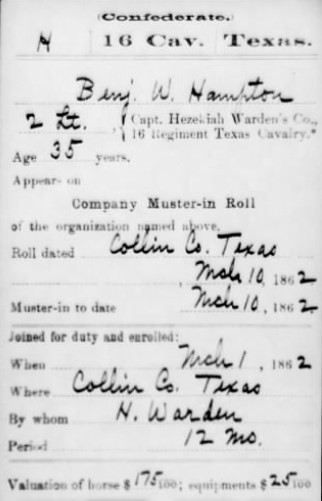 (Confederate.)
H 16 Cav. Texas.
Benj. W. Hampton
2 Lt. Capt. Hezekiah Warden's Co.,
16 Regiment Texas Cavalry.*
Age 35 years.
Appears on
Company Muster-in Roll
of the organization named above.
Roll dated Collin Co. Texas
, Mch 10, 1862
Muster-in to date Mch 10, 1862
Joined for duty and enrolled:
When Mch 1, 1862
Where Collin Co. Texas
By whom H. Warden
Period 12 Mo.
Valuation of horse $175/100; equipments $25/100